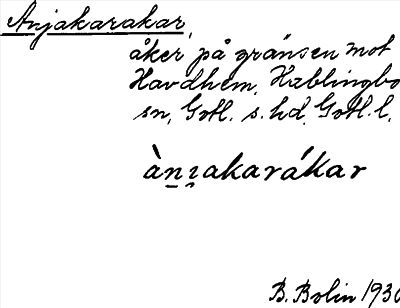 Anjakarakar,
åker på gränsen mot
Havdhem, Hablingbo
sn, Gotl. s. hd, Gotl. l.
àn̠ɀakarákar
B. Bolin 1930